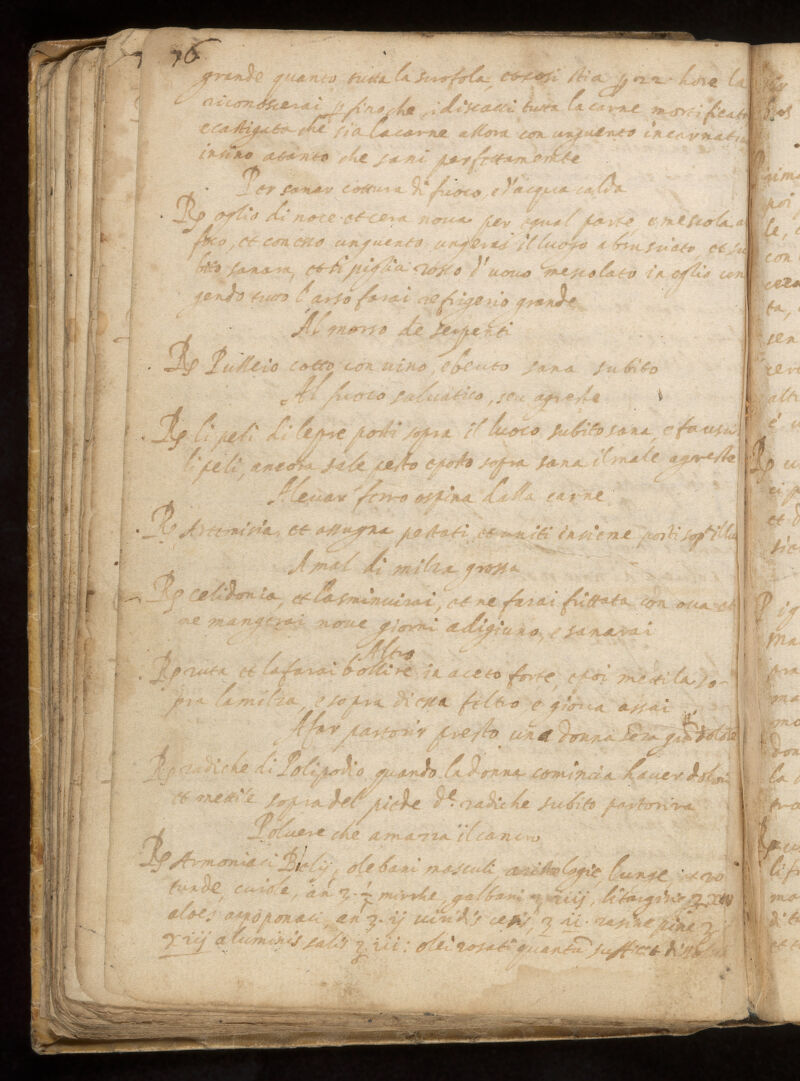 76
grande quanto tutta la scrofola, et cosi stia p 22 hore la
riconoscerai p fino che, i discacci tutta la carne mortificata
e castigata che sia la carne allora con unguento incarnati
insino a tanto che sani perfettamente
Per sanar cottura di fuoco, e d'acqua calda
Rp oglio di noce et cera nova per egual parte, e mescola a
foco, et con esso unguento ungerai il luoco abrusciato, et su
bito sanara, et si piglia rosso d'uovo mescolato in oglio un
gendo tutto l'arso farai refrigerio grande
Al morso de serpenti
Rp Pulleio cotto con vino, e beuto sana subito
Al fuoco salvatico, seu agreste
Rp li peli di lepre posti sopra il luoco subito sana, e fa
li peli, ancora sale pesto e posto sopra sana il male agreste
A levar ferro o spina dalla carne
Rp Artemisia, et assugna pestati, et uniti insieme posti sop
A mal di milza grossa
Rp celidonia, et la sminuirai, et ne farai frittata con ova et
ne mangerai nove giorni a digiuno, e sanarai
Altro
Rp ruta et la farai bollire in aceto forte, e poi mettila so-
pra la milza, e sopra di essa feltro e giova assai
A far partorir presto una donna seza gra dolore
Rp radiche di Polipodio, quando la donna comincia haver dolori
et mettile sopra del piede de radiche subito partorira
Polvere che amazza il cancro
Rp Armoniaci Belij, olebani masculi aristologie lunge, et ro
tunde, an ʒ ½ mirrhe, galbani ʒ iiij, litargirii
aloes oppoponaci, an ʒ ij viridis eris, ʒ ii. rasine pine ʒ
aluminis salis ʒ iii: olei rosati quantu suffict